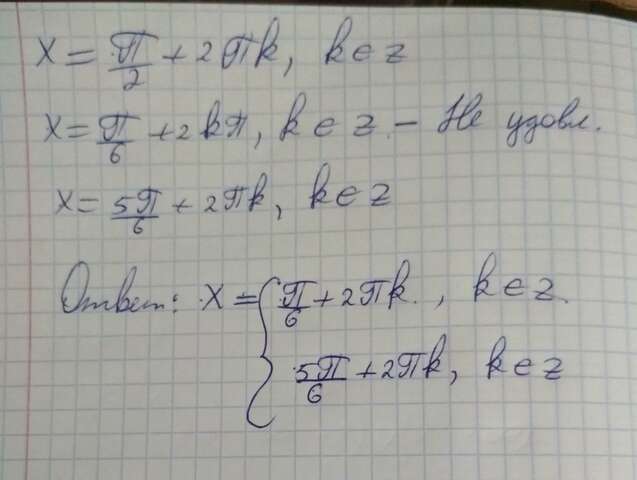 x = π/2 + 2πk, k∈z
x = π/6 + 2kπ, k∈z - Не удовл.
x = 5π/6 + 2πk, k∈z
Ответ: x = { π/6 + 2πk, k∈z.
5π/6 + 2πk, k∈z